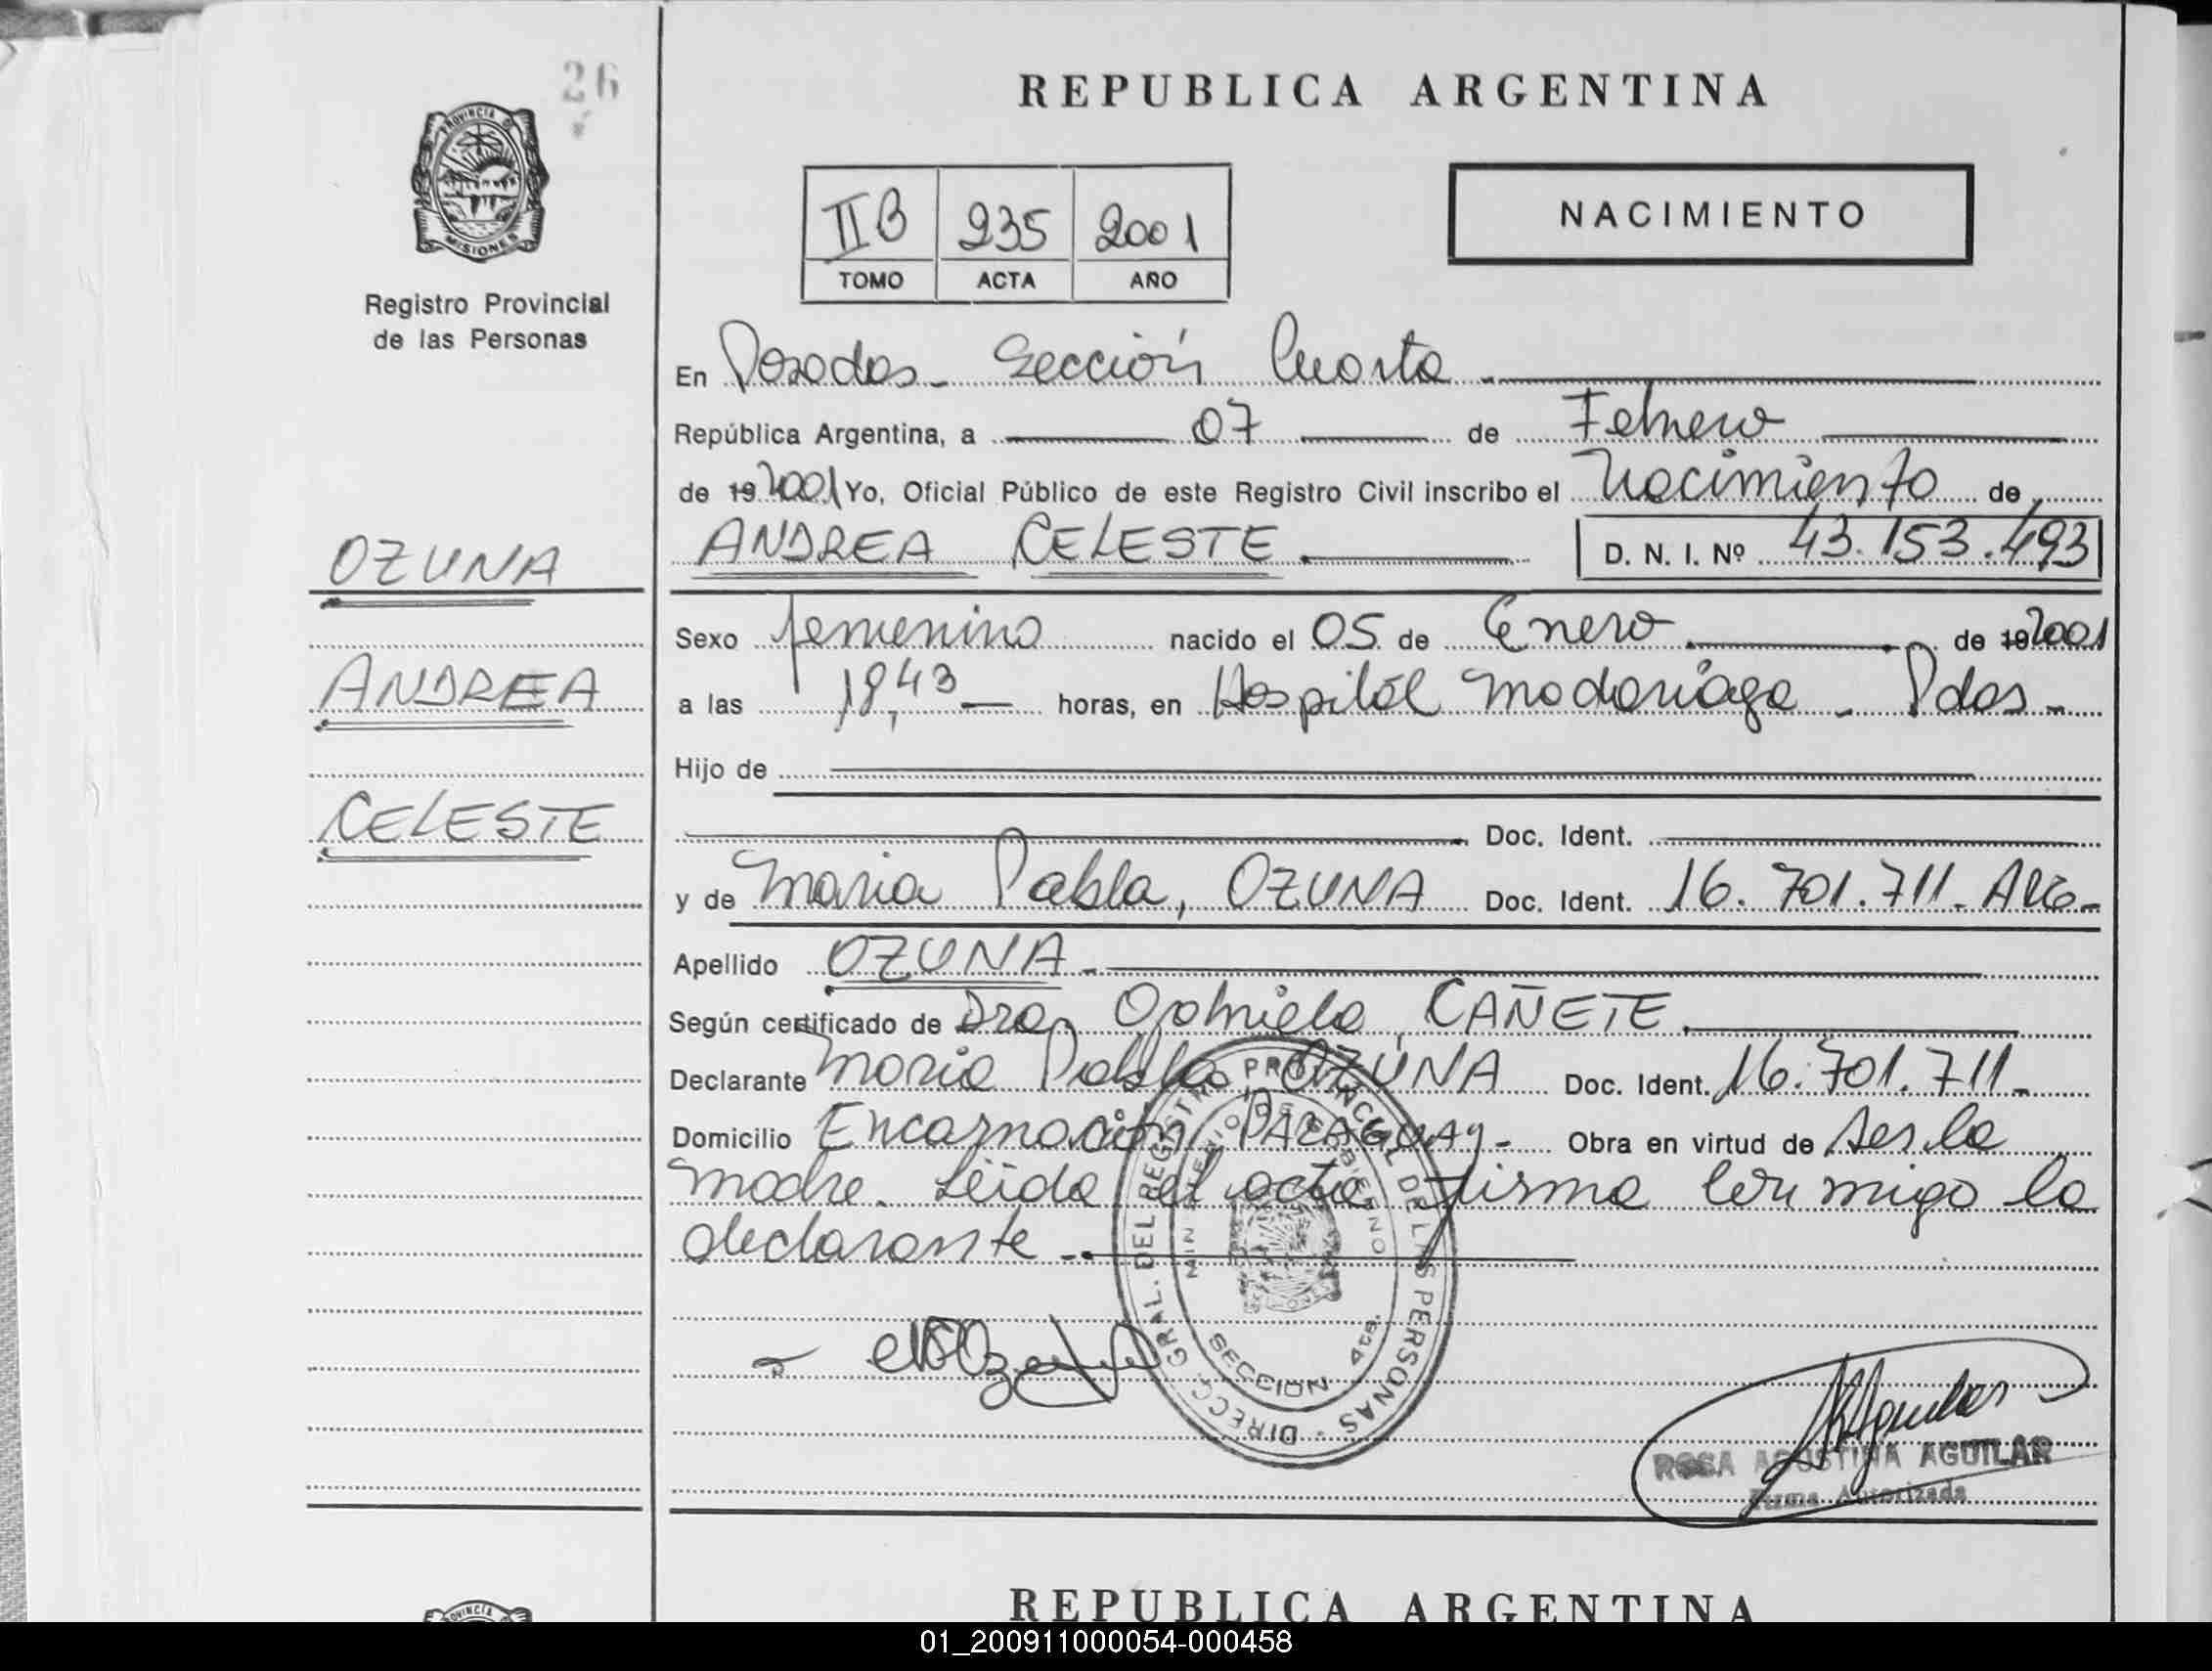 26
REPUBLICA ARGENTINA
PROVINCIA D
MISIONES
Registro Provincial
de las Personas
II B 235 2001
TOMO ACTA AÑO
NACIMIENTO
En Posadas - Sección Cuarta -
República Argentina, a 07 de Febrero
de 19 2001 Yo, Oficial Público de este Registro Civil inscribo el Nacimiento de
OZUNA
ANDREA CELESTE. D. N. I. Nº 43.153.493
Sexo femenino nacido el 05 de Enero de 19 2001
ANDREA
a las 18,43 horas, en Hospital Madariaga - Pdas -
Hijo de
CELESTE
Doc. Ident.
y de Maria Pabla, OZUNA Doc. Ident. 16.701.711 - ARG -
Apellido OZUNA -
Según certificado de Dra. Gabriela CAÑETE
Declarante Maria Pabla OZUNA Doc. Ident. 16.701.711 -
Domicilio Encarnación PARAGUAY - Obra en virtud de ser la
madre. Leida el acta firma conmigo la
declarante -
DIRECC. GRAL. DEL REGISTRO PROVINCIAL DE LAS PERSONAS
MINISTERIO DE GOBIERNO
SECCION 4ta.
ROSA AGUSTINA AGUILAR
Firma Autorizada
REPUBLICA ARGENTINA
OVINCIA
01_200911000054-000458